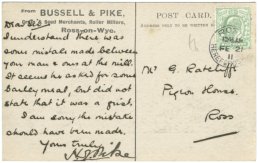 From BUSSELL & PIKE,
Seed Merchants, Roller Millers,
Ross-on-Wye.
POST CARD.
Dear Sir
I understand there was
some mistake made between
your man & ours at the mill.
It seems he asked for some
barley meal, but did not
state that it was a grist.
I am sorry the mistake
should have been made.
Yours truly
H J Pike
Mr G. Ratcliff
Pigeon House
Ross
ROSS
FE 2
11